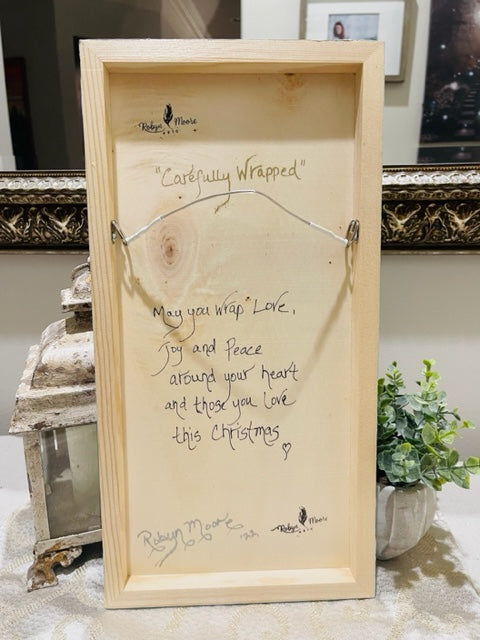 Robyn Moore
"Carefully Wrapped"
May you Wrap Love,
Joy and Peace
around your heart
and those you Love
this Christmas
Robyn Moore '22
Robyn Moore